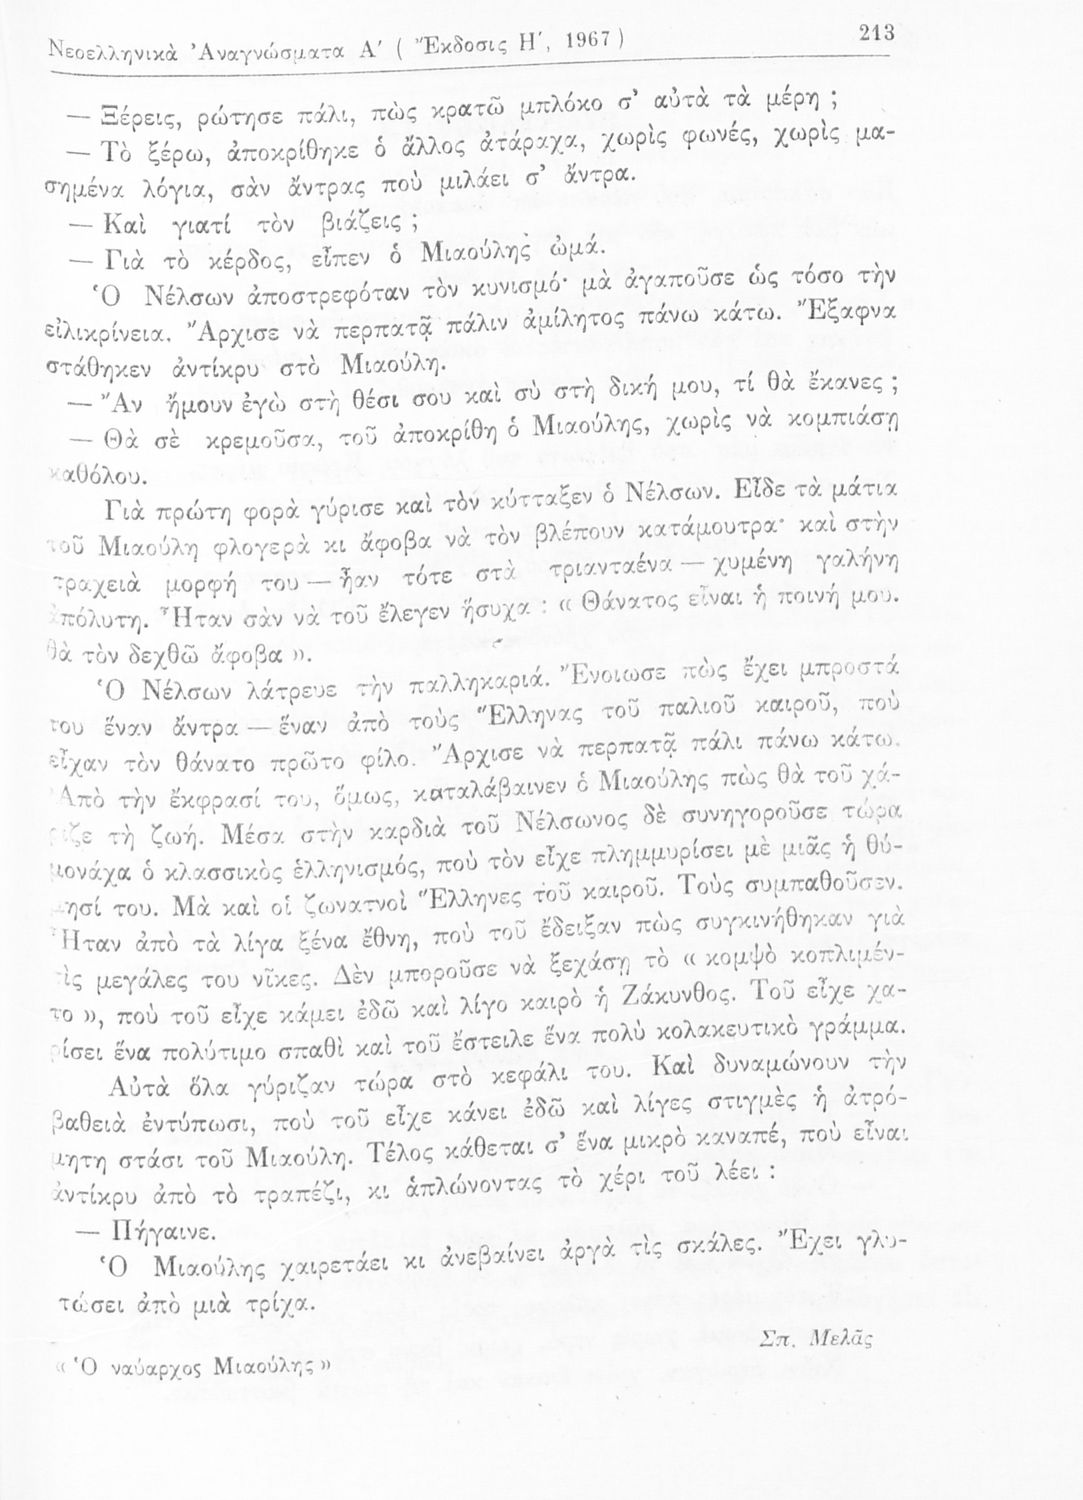 Νεοελληνικὰ Ἀναγνώσματα Α' ( Ἔκδοσις Η', 1967 ) 213
— Ξέρεις, ρώτησε πάλι, πὼς κρατῶ μπλόκο σ' αὐτὰ τὰ μέρη ;
— Τὸ ξέρω, ἀποκρίθηκε ὁ ἄλλος ἀτάραχα, χωρὶς φωνές, χωρὶς μα-
σημένα λόγια, σὰν ἄντρας ποὺ μιλάει σ' ἄντρα.
— Καὶ γιατί τὸν βιάζεις ;
— Γιὰ τὸ κέρδος, εἶπεν ὁ Μιαούλης ὠμά.
Ὁ Νέλσων ἀποστρεφόταν τὸν κυνισμό· μὰ ἀγαποῦσε ὡς τόσο τὴν
εἰλικρίνεια. Ἄρχισε νὰ περπατᾷ πάλιν ἀμίλητος πάνω κάτω. Ἔξαφνα
στάθηκεν ἀντίκρυ στὸ Μιαούλη.
— Ἂν ἤμουν ἐγὼ στὴ θέσι σου καὶ σὺ στὴ δική μου, τί θὰ ἔκανες ;
— Θὰ σὲ κρεμοῦσα, τοῦ ἀποκρίθη ὁ Μιαούλης, χωρὶς νὰ κομπιάσῃ
καθόλου.
Γιὰ πρώτη φορὰ γύρισε καὶ τὸν κύτταξεν ὁ Νέλσων. Εἶδε τὰ μάτια
τοῦ Μιαούλη φλογερὰ κι ἄφοβα νὰ τὸν βλέπουν κατάμουτρα· καὶ στὴν
τραχειὰ μορφή του — ἦαν τότε στὰ τριανταένα — χυμένη γαλήνη
ἀπόλυτη. Ἦταν σὰν νὰ τοῦ ἔλεγεν ἥσυχα : « Θάνατος εἶναι ἡ ποινή μου.
Θὰ τὸν δεχθῶ ἄφοβα ».
Ὁ Νέλσων λάτρευε τὴν παλληκαριά. Ἔνοιωσε πὼς ἔχει μπροστά
του ἕναν ἄντρα — ἕναν ἀπὸ τοὺς Ἕλληνας τοῦ παλιοῦ καιροῦ, ποὺ
εἶχαν τὸν θάνατο πρῶτο φίλο. Ἄρχισε νὰ περπατᾷ πάλι πάνω κάτω.
Ἀπὸ τὴν ἔκφρασί του, ὅμως, καταλάβαινεν ὁ Μιαούλης πὼς θὰ τοῦ χά-
ριζε τὴ ζωή. Μέσα στὴν καρδιὰ τοῦ Νέλσωνος δὲ συνηγοροῦσε τώρα
μονάχα ὁ κλασσικὸς ἑλληνισμός, ποὺ τὸν εἶχε πλημμυρίσει μὲ μιᾶς ἡ θύ-
μησί του. Μὰ καὶ οἱ ζωνατνοὶ Ἕλληνες τοῦ καιροῦ. Τοὺς συμπαθοῦσεν.
Ἦταν ἀπὸ τὰ λίγα ξένα ἔθνη, ποὺ τοῦ ἔδειξαν πὼς συγκινήθηκαν γιὰ
τὶς μεγάλες του νῖκες. Δὲν μποροῦσε νὰ ξεχάσῃ τὸ « κομψὸ κοπλιμέν-
το », ποὺ τοῦ εἶχε κάμει ἐδῶ καὶ λίγο καιρὸ ἡ Ζάκυνθος. Τοῦ εἶχε χα-
ρίσει ἕνα πολύτιμο σπαθὶ καὶ τοῦ ἔστειλε ἕνα πολὺ κολακευτικὸ γράμμα.
Αὐτὰ ὅλα γύριζαν τώρα στὸ κεφάλι του. Καὶ δυναμώνουν τὴν
βαθειὰ ἐντύπωσι, ποὺ τοῦ εἶχε κάνει ἐδῶ καὶ λίγες στιγμὲς ἡ ἀτρό-
μητη στάσι τοῦ Μιαούλη. Τέλος κάθεται σ' ἕνα μικρὸ καναπέ, ποὺ εἶναι
ἀντίκρυ ἀπὸ τὸ τραπέζι, κι ἁπλώνοντας τὸ χέρι τοῦ λέει :
— Πήγαινε.
Ὁ Μιαούλης χαιρετάει κι ἀνεβαίνει ἀργὰ τὶς σκάλες. Ἔχει γλυ-
τώσει ἀπὸ μιὰ τρίχα.
Σπ. Μελᾶς
« Ὁ ναύαρχος Μιαούλης »